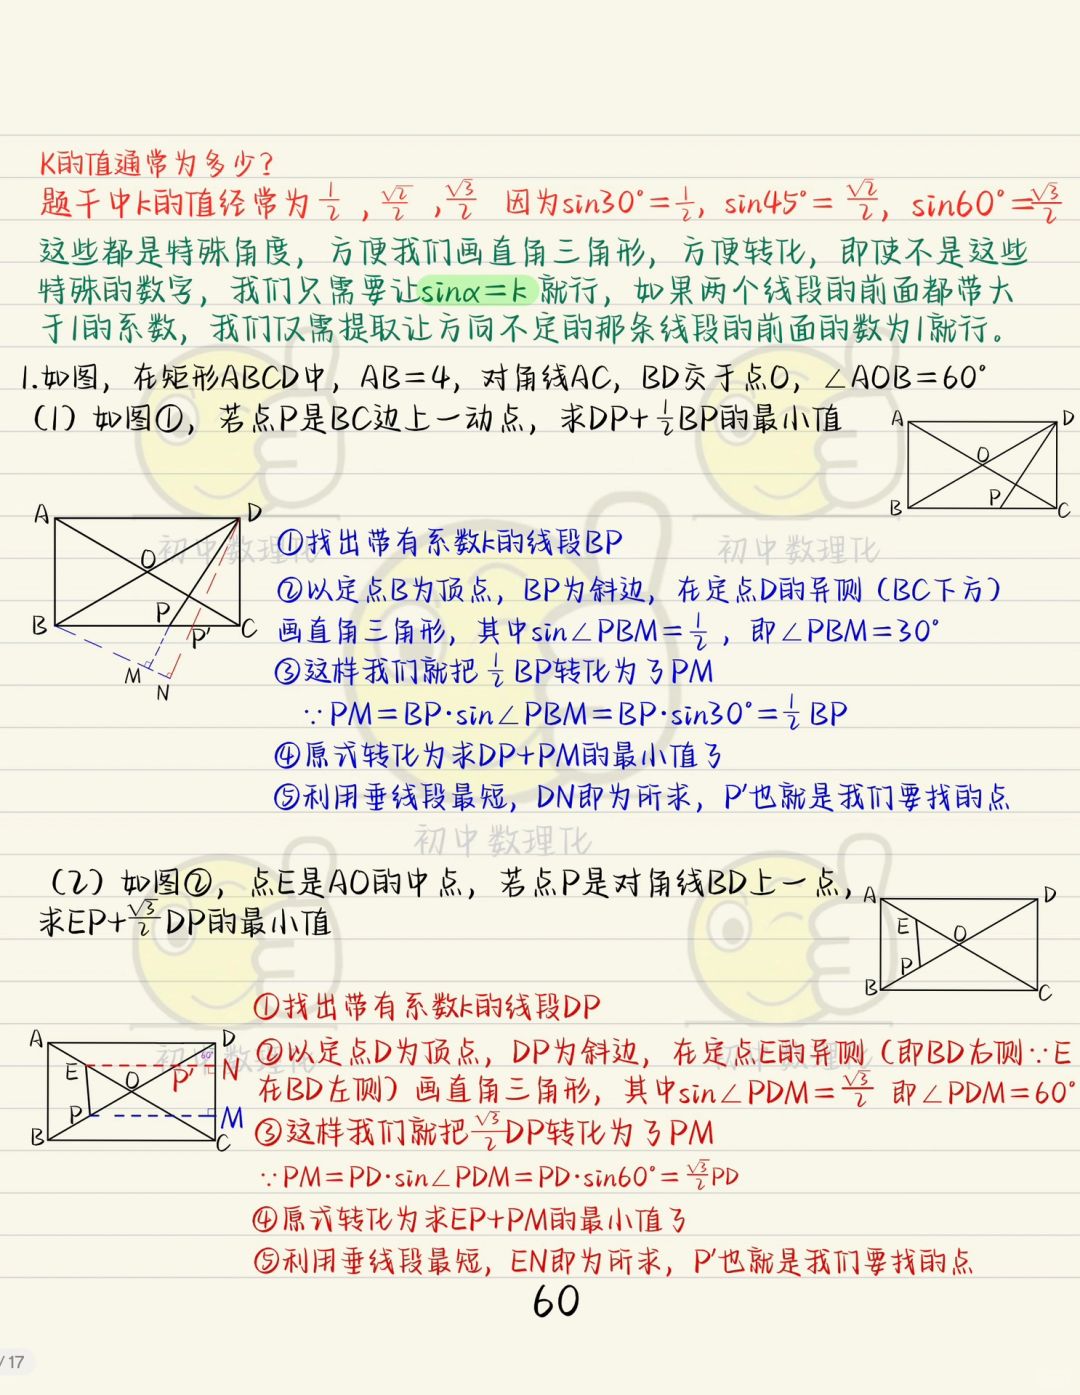 K的值通常为多少?
题干中k的值经常为1/2, √2/2, √3/2 因为sin30°=1/2, sin45°=√2/2, sin60°=√3/2
这些都是特殊角度,方便我们画直角三角形,方便转化,即使不是这些
特殊的数字,我们只需要让sinα=k就行,如果两个线段的前面都带大
于1的系数,我们仅需提取让方向不定的那条线段的前面的数为1就行。
1.如图,在矩形ABCD中,AB=4,对角线AC,BD交于点O,∠AOB=60°
(1)如图①,若点P是BC边上一动点,求DP+1/2BP的最小值
A
D
O
B
P
C
A
D
O
B
P
P'
C
M
N
初中数理化
初中数理化
①找出带有系数k的线段BP
②以定点B为顶点,BP为斜边,在定点D的异侧(BC下方)
画直角三角形,其中sin∠PBM=1/2,即∠PBM=30°
③这样我们就把1/2BP转化为了PM
∵PM=BP·sin∠PBM=BP·sin30°=1/2BP
④原式转化为求DP+PM的最小值了
⑤利用垂线段最短,DN即为所求,P'也就是我们要找的点
初中数理化
(2)如图②,点E是AO的中点,若点P是对角线BD上一点,
求EP+√3/2DP的最小值
A
D
E
O
P
B
C
①找出带有系数k的线段DP
②以定点D为顶点,DP为斜边,在定点E的异侧(即BD右侧∵E
在BD左侧)画直角三角形,其中sin∠PDM=√3/2 即∠PDM=60°
③这样我们就把√3/2DP转化为了PM
∵PM=PD·sin∠PDM=PD·sin60°=√3/2PD
④原式转化为求EP+PM的最小值了
⑤利用垂线段最短,EN即为所求,P'也就是我们要找的点
A
D
60°
E
O
P'
N
P
M
B
C
初中数理化
初中数理化
60
/17